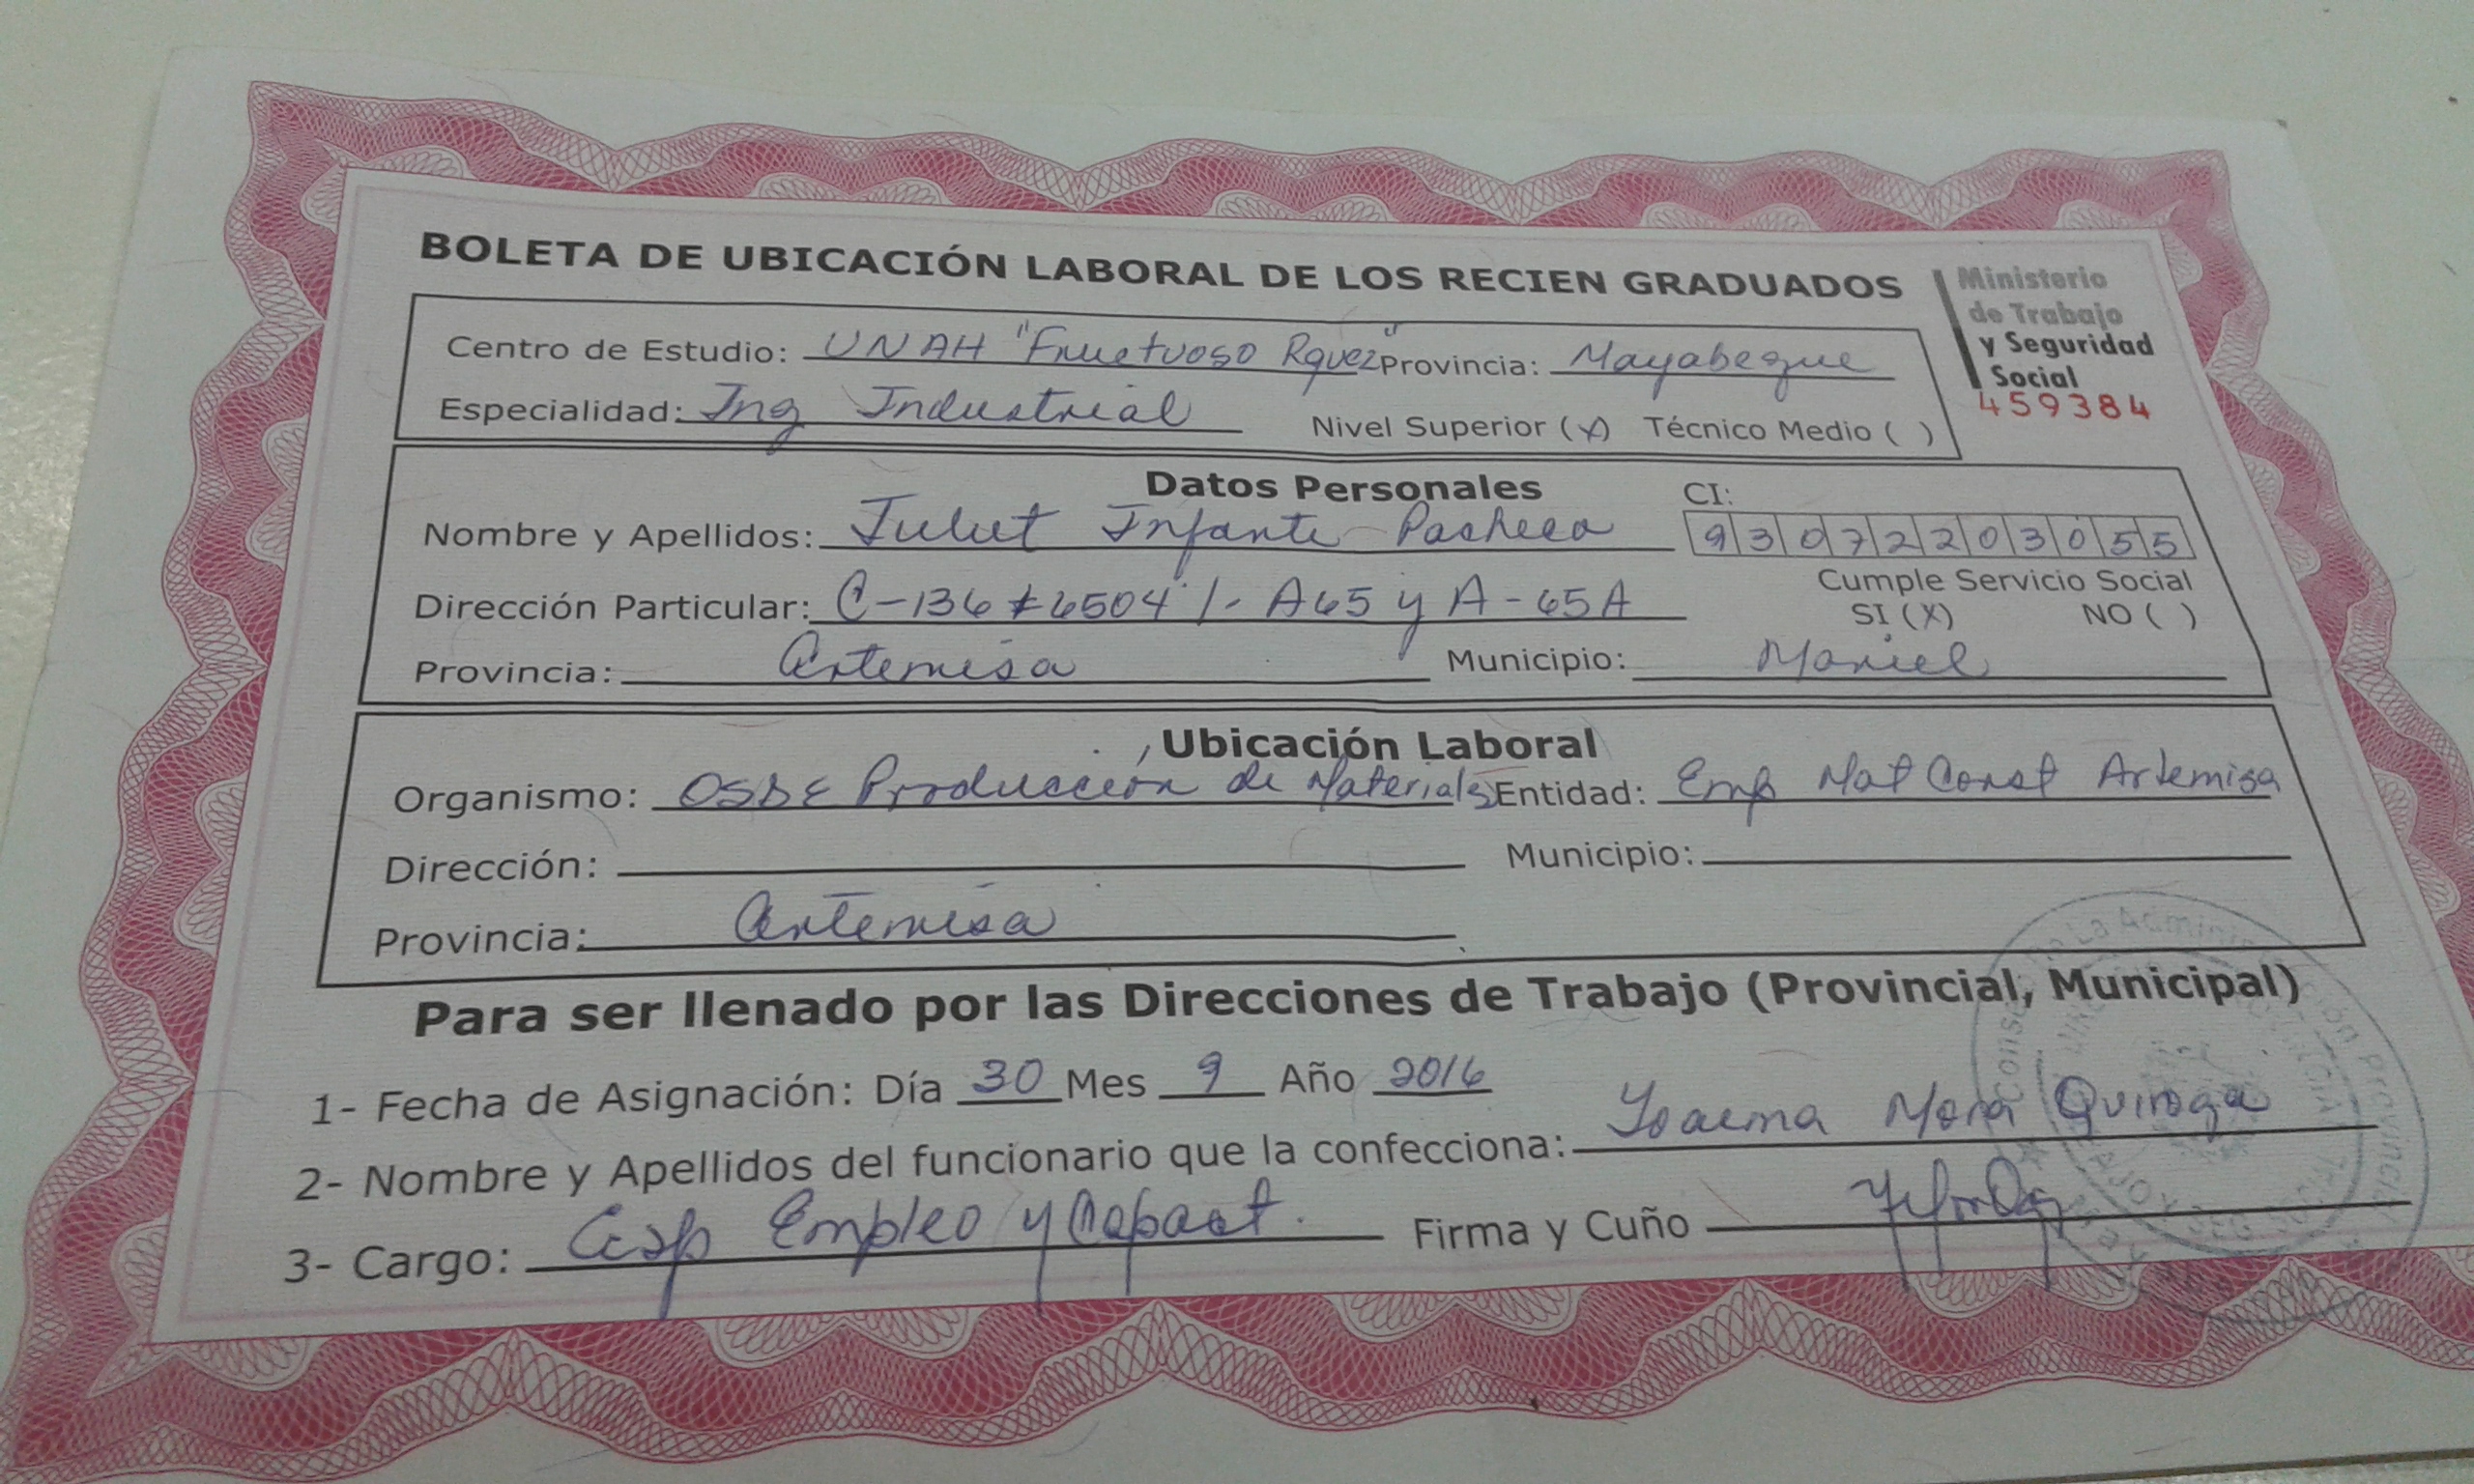 BOLETA DE UBICACIÓN LABORAL DE LOS RECIEN GRADUADOS
Ministerio
de Trabajo
y Seguridad
Social
459384
Centro de Estudio: UNAH "Fructuoso Rguez" Provincia: Mayabeque
Especialidad: Ing Industrial Nivel Superior (x) Técnico Medio ( )
Datos Personales
CI:
Nombre y Apellidos: Infante Pacheco 93072203055
Cumple Servicio Social
Dirección Particular: C-136 # 6504 /- A65 y A-65A SI (X) NO ( )
Provincia: Artemisa Municipio: Mariel
Ubicación Laboral
Organismo: OSDE Producción de Materiales Entidad: Emp Mat Const Artemisa
Dirección: Municipio:
Provincia: Artemisa
Para ser llenado por las Direcciones de Trabajo (Provincial, Municipal)
1- Fecha de Asignación: Día 30 Mes 9 Año 2016
2- Nombre y Apellidos del funcionario que la confecciona: Mora Quiroga
3- Cargo: Esp Empleo y Capact. Firma y Cuño